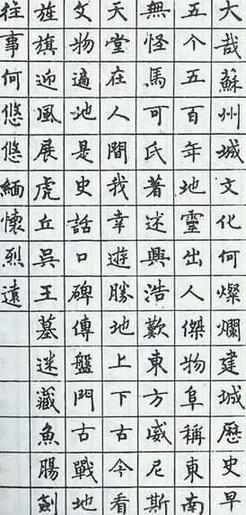 大哉蘇州城文化何燦爛建城歷史早
五个五百年地靈出人傑物阜稱東南
無怪馬可氏著迷興浩歎東方威尼斯
天堂在人間我幸遊勝地上下古今看
文物遍地是史話口碑傳盤門古戰地
旌旗迎風展虎丘吳王墓迷藏魚腸劍
往事何悠悠緬懷烈遠